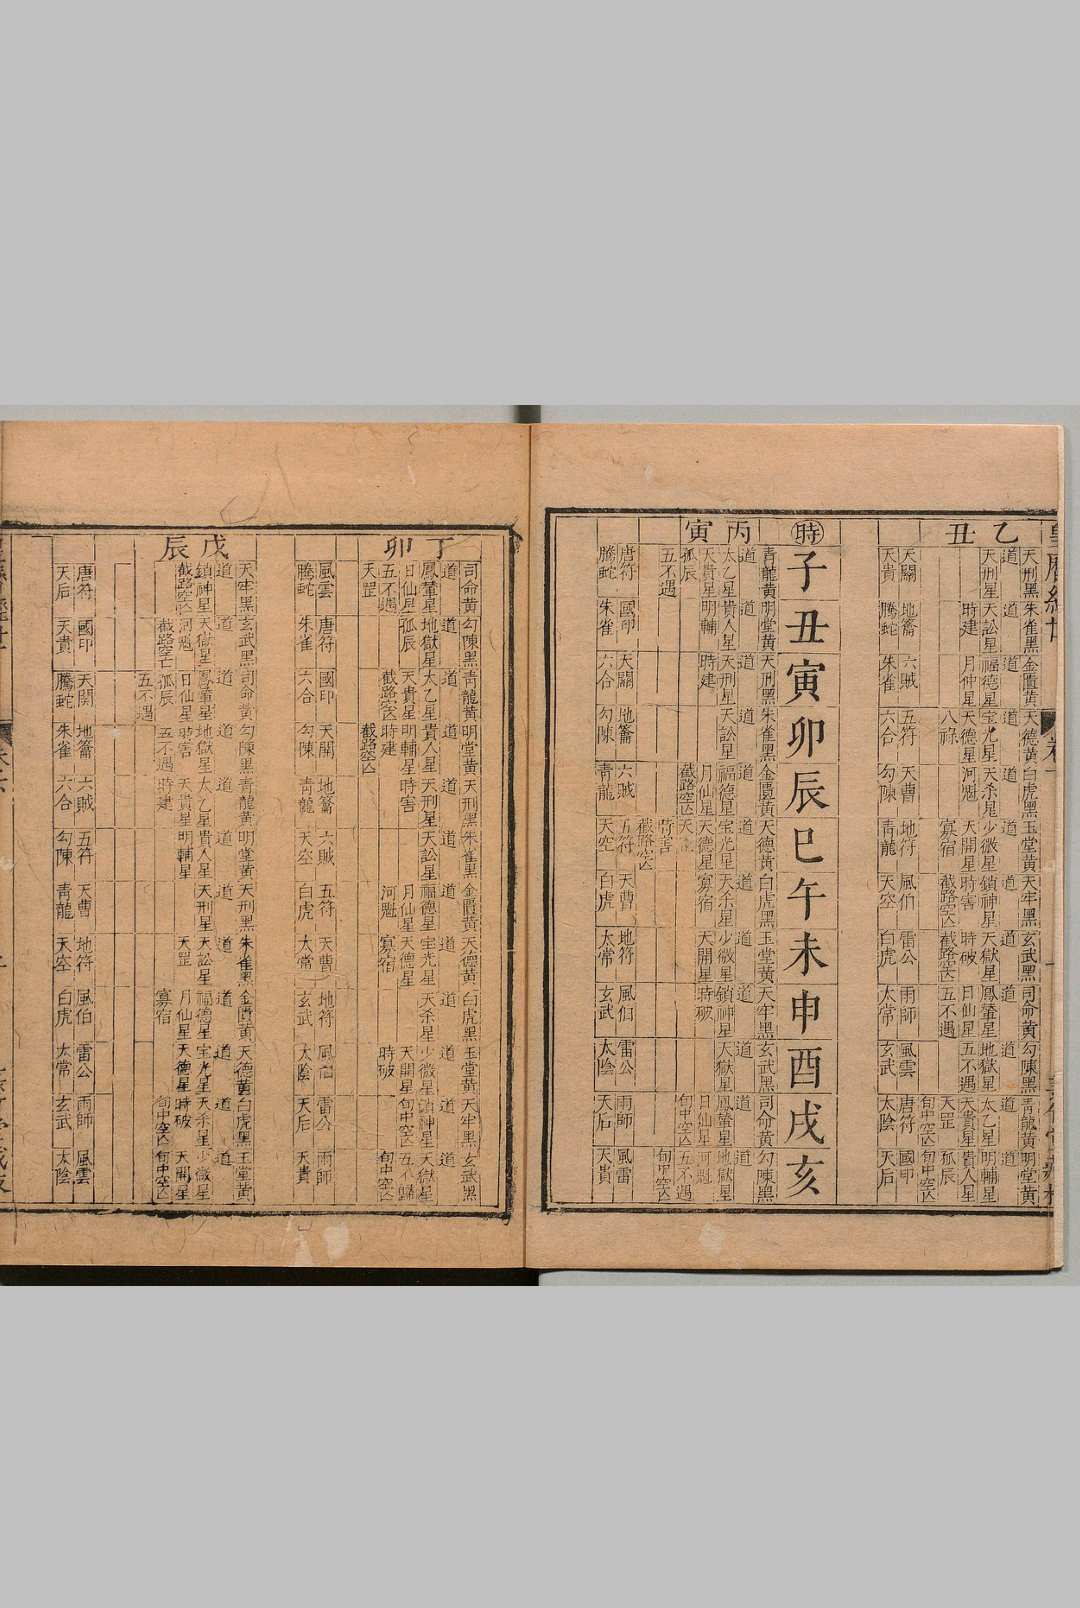 皇曆經
乙丑
天刑黑 朱雀黑 金匱黃 天德黃 白虎黑 玉堂黃 天牢黑 玄武黑 司命黃 勾陳黑 青龍黃 明堂黃
道 道 道 道 道 道 道 道 道 道 道 道
天刑星 天訟星 福德星 宝光星 天杀星 少微星 鎖神星 天獄星 鳳輦星 地獄星 太乙星 明輔星
時建 月仲星 天德星 河魁 天開星 時害 時破 日仙星 五不遇 天貴星 貴人星
八祿 寡宿 截路空亡 截路空亡 五不遇 天罡 孤辰
旬中空亡 旬中空亡
天關 地籥 六賊 五符 天曹 地符 風伯 雷公 雨師 風雲 唐符 國印
天貴 騰蛇 朱雀 六合 勾陳 青龍 天空 白虎 太常 玄武 太陰 天后
時 子 丑 寅 卯 辰 巳 午 未 申 酉 戌 亥
丙寅
青龍黃 明堂黃 天刑黑 朱雀黑 金匱黃 天德黃 白虎黑 玉堂黃 天牢黑 玄武黑 司命黃 勾陳黑
道 道 道 道 道 道 道 道 道 道 道 道
太乙星 貴人星 天刑星 天訟星 福德星 宝光星 天杀星 少微星 鎖神星 天獄星 鳳輦星 地獄星
天貴星 明輔 時建 月仙星 天德星 寡宿 天開星 時破 日仙星 河魁
孤辰 截路空亡 旬中空亡 五不遇
五不遇 時害 旬中空亡
截路空亡
唐符 國印 天關 地籥 六賊 五符 天曹 地符 風伯 雷公 雨師 風雷
騰蛇 朱雀 六合 勾陳 青龍 天空 白虎 太常 玄武 太陰 天后 天貴
丁卯
司命黃 勾陳黑 青龍黃 明堂黃 天刑黑 朱雀黑 金匱黃 天德黃 白虎黑 玉堂黃 天牢黑 玄武黑
道 道 道 道 道 道 道 道 道 道 道 道
鳳輦星 地獄星 太乙星 貴人星 天刑星 天訟星 福德星 宝光星 天杀星 少微星 鎖神星 天獄星
日仙星 孤辰 天貴星 明輔星 時害 月仙星 天德星 天開星 旬中空亡 五不歸
五不遇 截路空亡 時建 河魁 寡宿 時破 旬中空亡
天罡 截路空亡
風雲 唐符 國印 天關 地籥 六賊 五符 天曹 地符 風伯 雷公 雨師
騰蛇 朱雀 六合 勾陳 青龍 天空 白虎 太常 玄武 太陰 天后 天貴
戊辰
天牢黑 玄武黑 司命黃 勾陳黑 青龍黃 明堂黃 天刑黑 朱雀黑 金匱黃 天德黃 白虎黑 玉堂黃
道 道 道 道 道 道 道 道 道 道 道 道
鎖神星 天獄星 鳳輦星 地獄星 太乙星 貴人星 天刑星 天訟星 福德星 宝光星 天杀星 少微星
截路空亡 河魁 日仙星 時害 天貴星 明輔星 天罡 月仙星 天德星 時破 天開星
截路空亡 孤辰 五不遇 時建 寡宿 旬中空亡 旬中空亡
五不遇
唐符 國印 天関 地籥 六賊 五符 天曹 地符 風伯 雷公 雨師 風雲
天后 天貴 騰蛇 朱雀 六合 勾陳 青龍 天空 白虎 太常 玄武 太陰